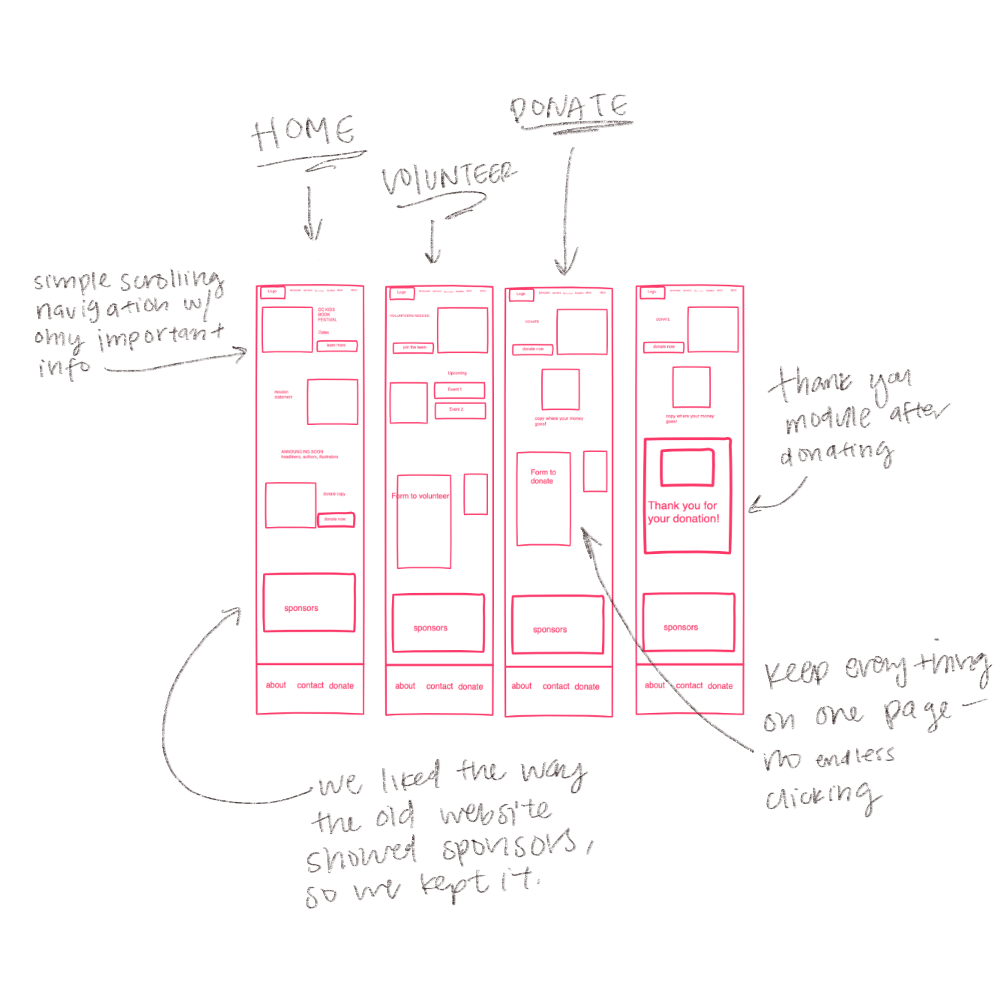 HOME
VOLUNTEER
DONATE
simple scrolling
navigation w/
only important
info
Logo
BOOK
FESTIVAL
Dates
learn more
mission
statement
ANNOUNCING SOON!
headliners, authors, illustrators
donate copy
donate now
sponsors
about contact donate
Logo
VOLUNTEERS NEEDED
join the team
Upcoming
Event 1
Event 2
Form to volunteer
sponsors
about contact donate
Logo
DONATE
donate now
copy where your money
goes!
Form to
donate
sponsors
about contact donate
Logo
DONATE
donate now
copy where your money
goes!
Thank you for
your donation!
sponsors
about contact donate
thank you
module after
donating
keep everything
on one page —
no endless
clicking
we liked the way
the old website
showed sponsors,
so we kept it.